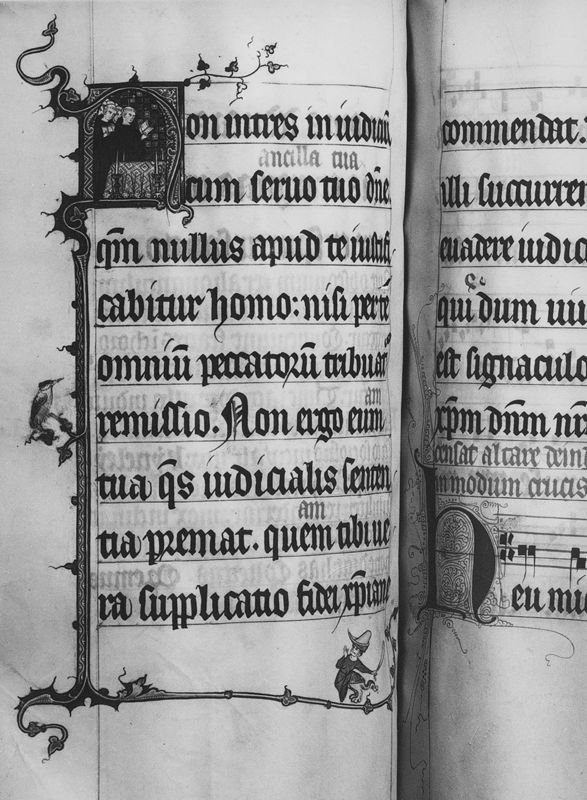 Non intres in iudiciū
ancilla tua
cum seruo tuo dn̄e
qm̄ nullus apud te iustifi
cabitur homo: nisi per te
omniū peccatorū tribuat
am
remissio. Non ergo eum
tua q̄s iudicialis senten
am
tia premat. quem tibi ue
ra supplicatio fidei xp̄iane
commendat.
illi succurren
euadere iudic
qui dum uiu
est signaculo
xp̄m dn̄m nr̄
censat altare
in modum crucis
Heu mi